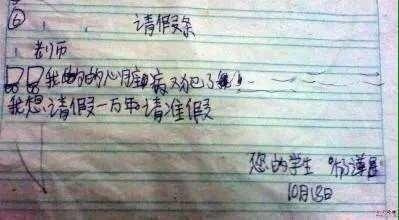 ⑥
请假条
老师
我的的心脏病又犯了!
我想请假一万年请准假
您的学生
10月18日